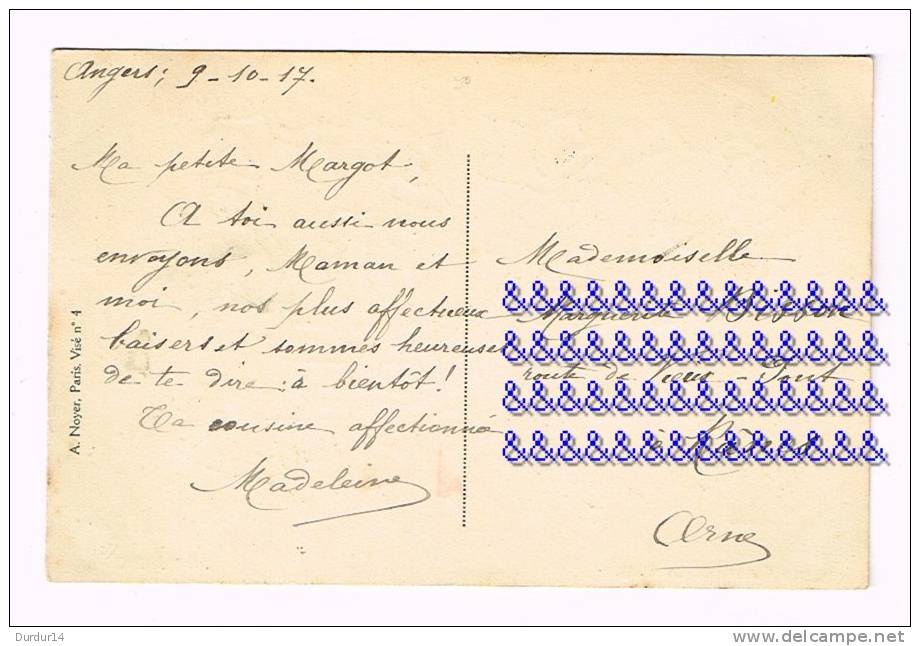 Angers; 9-10-17.
Ma petite Margot,
A toi aussi nous
envoyons, Maman et
moi, nos plus affectueux
baisers et sommes heureuses
de te dire : à bientôt !
Ta cousine affectionnée
Madeleine
Mademoiselle
&&&&&&&&&&&&&&
Marguerite
&&&&&&&&&&&&&&
route de Vieux-Pont
&&&&&&&&&&&&&&
à Rânes
&&&&&&&&&&&&&&
Orne
A. Noyer, Paris. Visé n° 4
Durdur14
delcampe.net